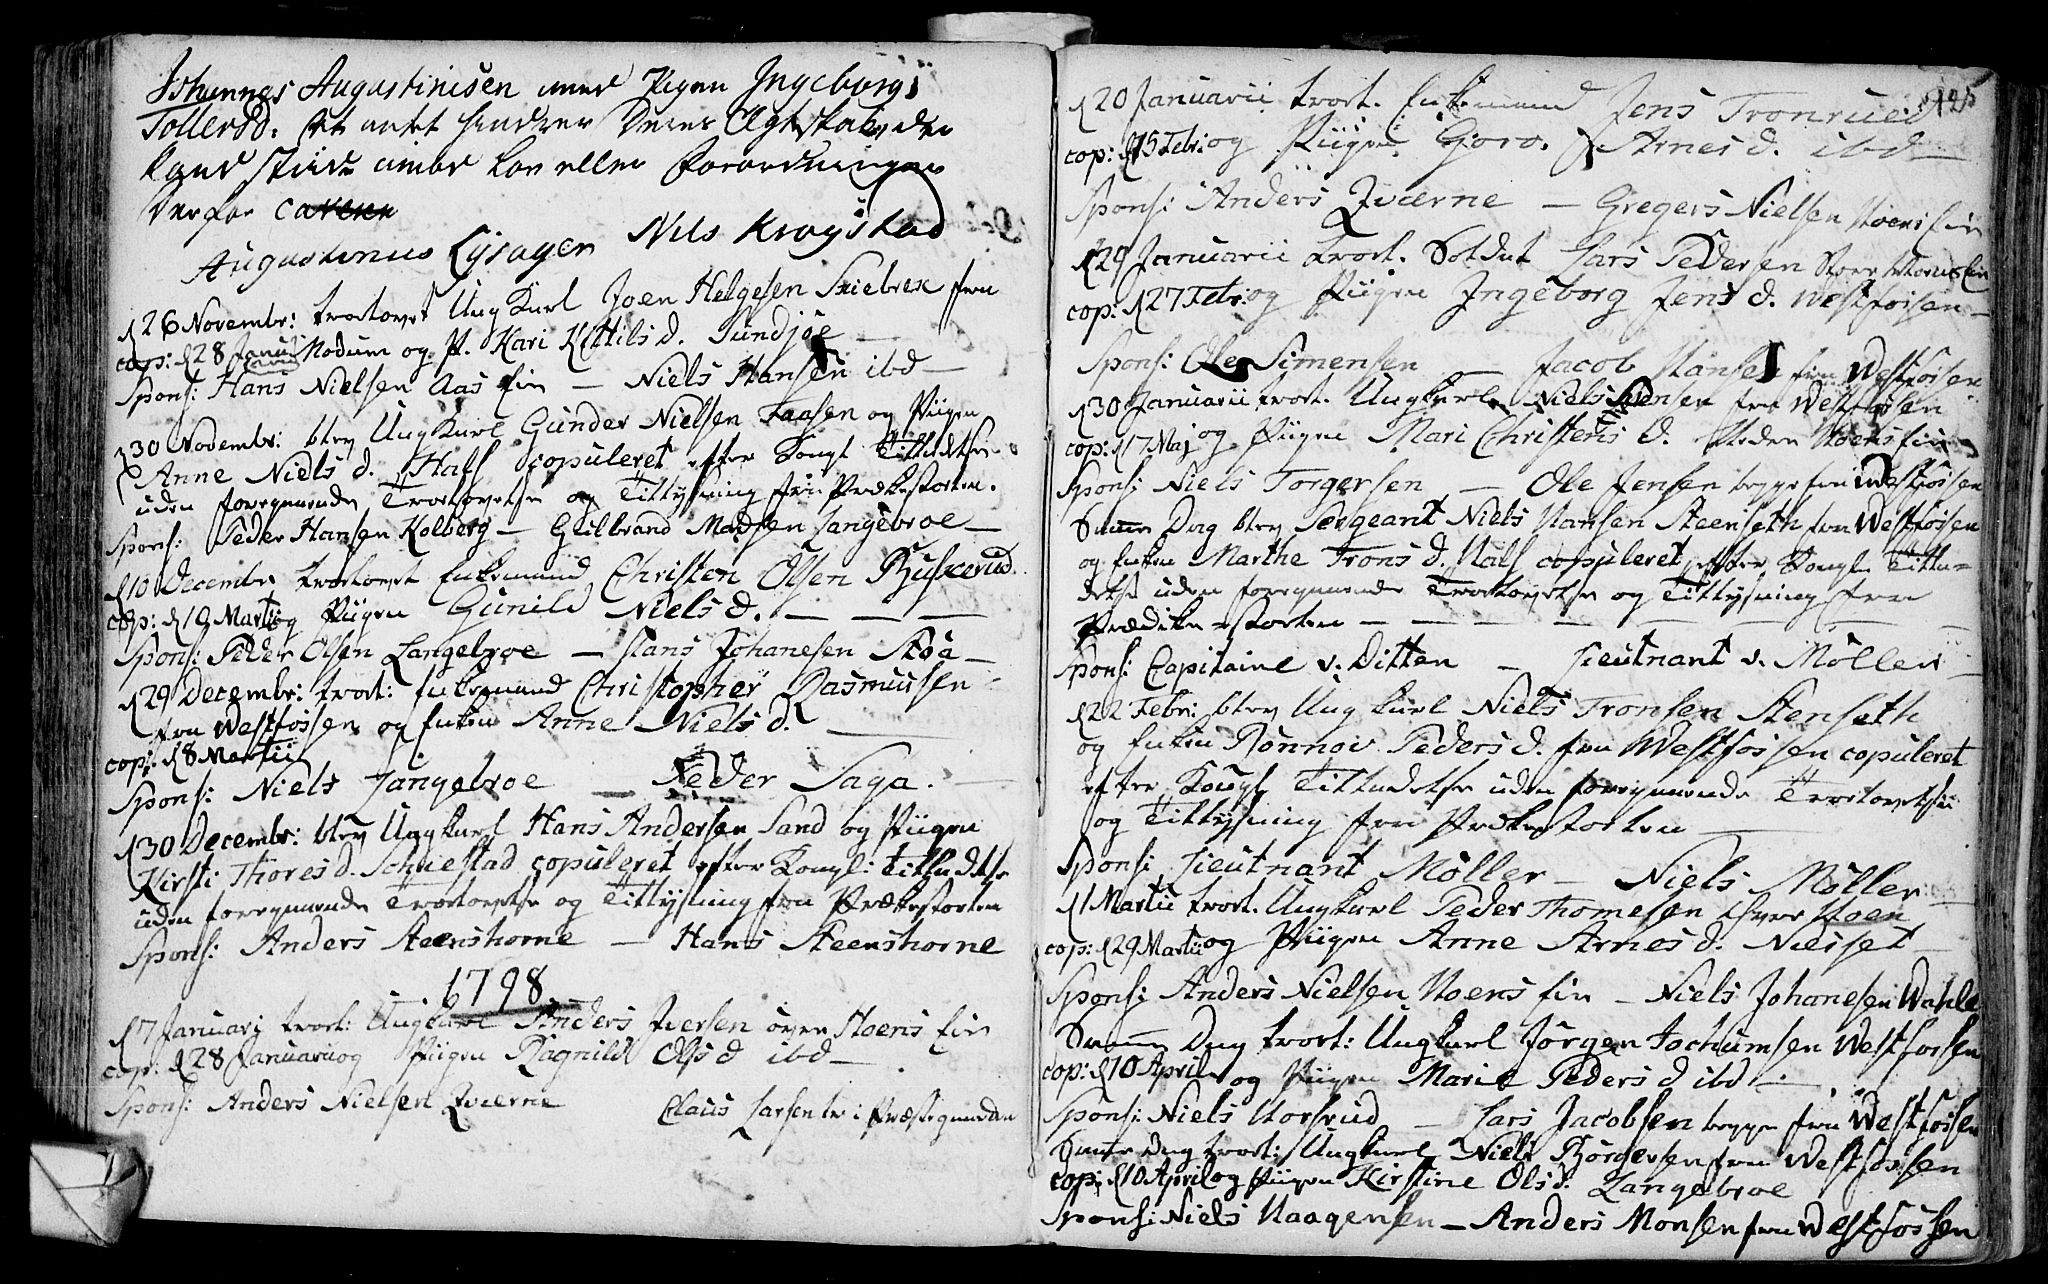 Johannes Augustinusen med Pigen Ingeborg
Tollersd: At intet hindrer Deres Ægteskab, der
kand stride imod Lov eller Forordninger
derfor cavere
Augustinus Lysager Nils Krogstad
d 26 Novembr: trolovet Ung Karl Joen Helgesen Skielbrek fra
cop: d 28 Janu: Modum og P. Kari Kittilsd. Sundjøe
Spons: Hans Nielsen Aas Eie — Niels Hansen ibd —
d 30 Novembr: blev Ung Karl Gunder Nielsen Faasen og Piigen
Anne Nielsd. Hals copuleret efter Kongl Tilladelse
uden foregaaende Trolovelse og Tillysning fra Prækestolen.
Spons: Peder Hansen Kolberg — Gulbrand Madsen Langebroe —
d 10 Decembr trolovet Enkemand Christen Olsen Buskerud
cop: d 19 Martii og Piigen Gunild Nielsd. — — —
Spons: Peder Olsen Langebroe — Hans Johanesen Støa —
d 29 Decembr: trol: Enkemand Christopher Rasmusen
fra Westfossen og Enken Anne Nielsd. —
cop: d 8 Martii
Spons: Niels Langebroe — Peder Saga. —
d 30 Decembr: blev Ung karl Hans Andersen Sand og Piigen
Kirsti Thoresd. Schuestad copuleret efter Kongl: Tilladelse
uden foregaaende Trolovelse og Tillysning fra Prækestolen
Spons: Anders Steenshorne — Hans Steenshorne
1798
d 7 Januarj trol: Ungkarl Anders Iversen øvre Hoens Eie
cop: d 28 Januarii og Piigen Ragnild Olsd ibd —
Spons: Anders Nielsen Qværne Claus Larsen i Præstegaarden
125
d 20 Januarii trol. Enkemand Jens Tronrud
cop: d 15 Febr: og Piigen Gjoro Arnesd. ibd —
Spons: Anders Qværne — Gregers Nielsen Hoens Eie
d 29 Januarii trol. Soldat Lars Pedersen
cop: d 27 Febr: og Piigen Ingeborg Jensd. Westfosen —
Spons: Ole Simensen — Jacob Hansen fra Westfosen
d 30 Januarii trol. Ungkarl Niels fra Westfosen
cop: d 17 Maj og Piigen Mari Christensd. Neden Hoens Eie
Spons: Niels Torgersen — Ole Jensen begge fra Westfossen
Samme Dag blev Sergeant Niels Hansen Steenseth fra Westfosen
og Enken Marthe Tronsd. Hals copuleret, efter Kongl Tilla=
delse uden foregaaende Trolovelse og Tillysning fra
Prædike=stolen — — — — — —
Spons: Capitaine v. Ditten — Lieutnant v. Möller
d 22 Febr: blev Ung karl Niels Tronsen Stenseth
og Enken Rønnov Pedersd. fra Westfossen copuleret
efter Kongl Tilladelse uden foregaaende Trolovelse
og Tillysning fra Prækestolen —
Spons: Lieutnant Möller — Niels Möller
d 1 Martii trol. Ungkarl Peder Thomesen øvre Hoen
cop: d 29 Martii og Piigen Anne Arnesd. Neset
Spons: Anders Nielsen Hoens Eie — Niels Johanesen Wahle
Samme Dag trol: Ungkarl Jörgen Jochumsen Westfossen
cop: d 10 April og Piigen Marie Pedersd ibd —
Spons: Niels Horsrud — Lars Jacobsen begge fra Westfossen
Samme Dag trol: Ungkarl Niels Børgersen fra Westfossen
cop: d 10 April og Piigen Kirstine Olsd. Langebroe
Spons: Niels Haagensen — Anders Monsen fra Westfossen